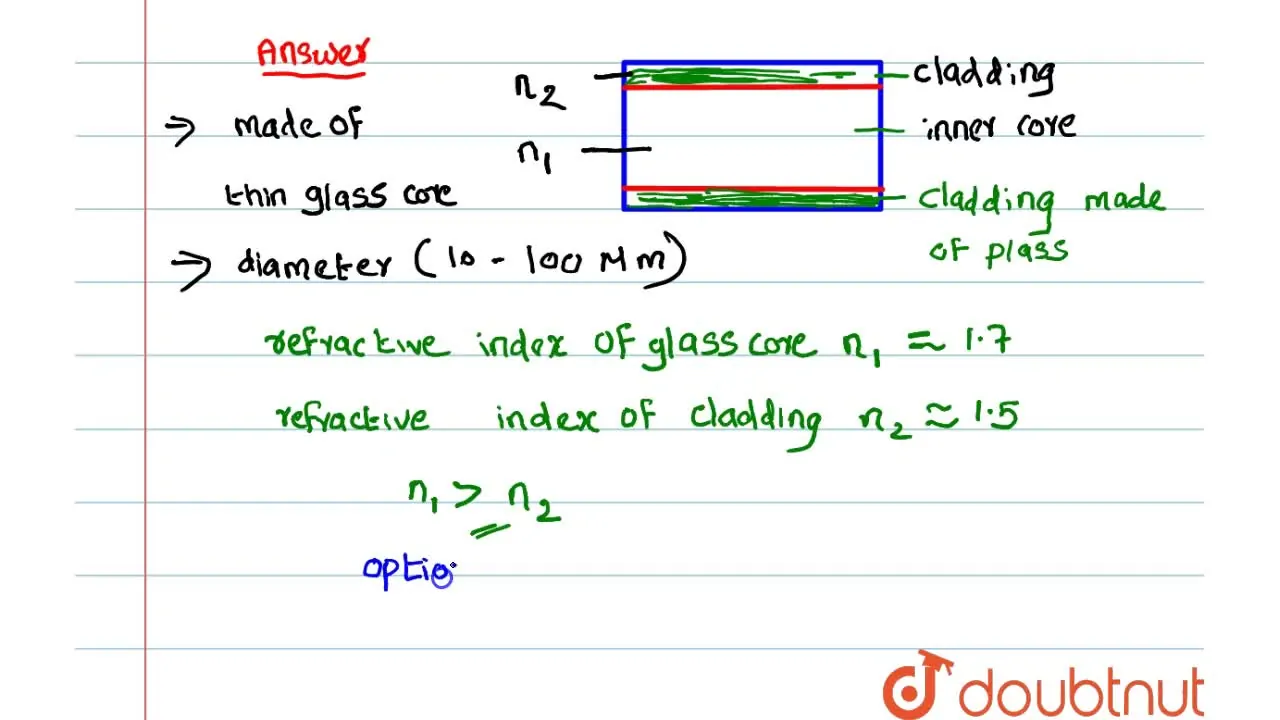 Answer
n2
cladding
⇒ made of
inner core
n1
thin glass core
cladding made
of plass
⇒ diameter (10 - 100 Mm)
refractive index of glass core n1 ≈ 1.7
refractive index of cladding n2 ≈ 1.5
n1 > n2
optio
doubtnut